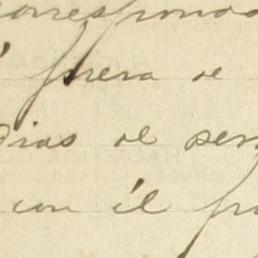 corresponda
fuera de
Dias de ser
con él